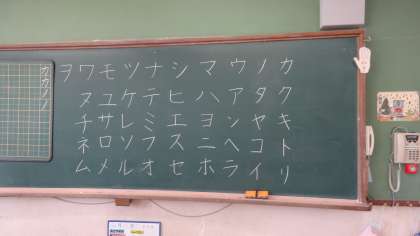 カクキトリ
ノタヤコイ
ウアンヘラ
マハヨニホ
シヒエスセ
ナテミフオ
ツケレソル
モユサロメ
ワヌチネム
ヲ
カカノノ